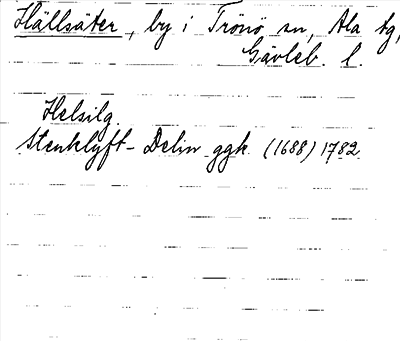 Hällsäter, by i Trönö sn, Ala tg,
Gävleb. l.
Helsilg.
Stenklyft - Delin ggk. (1688) 1782.